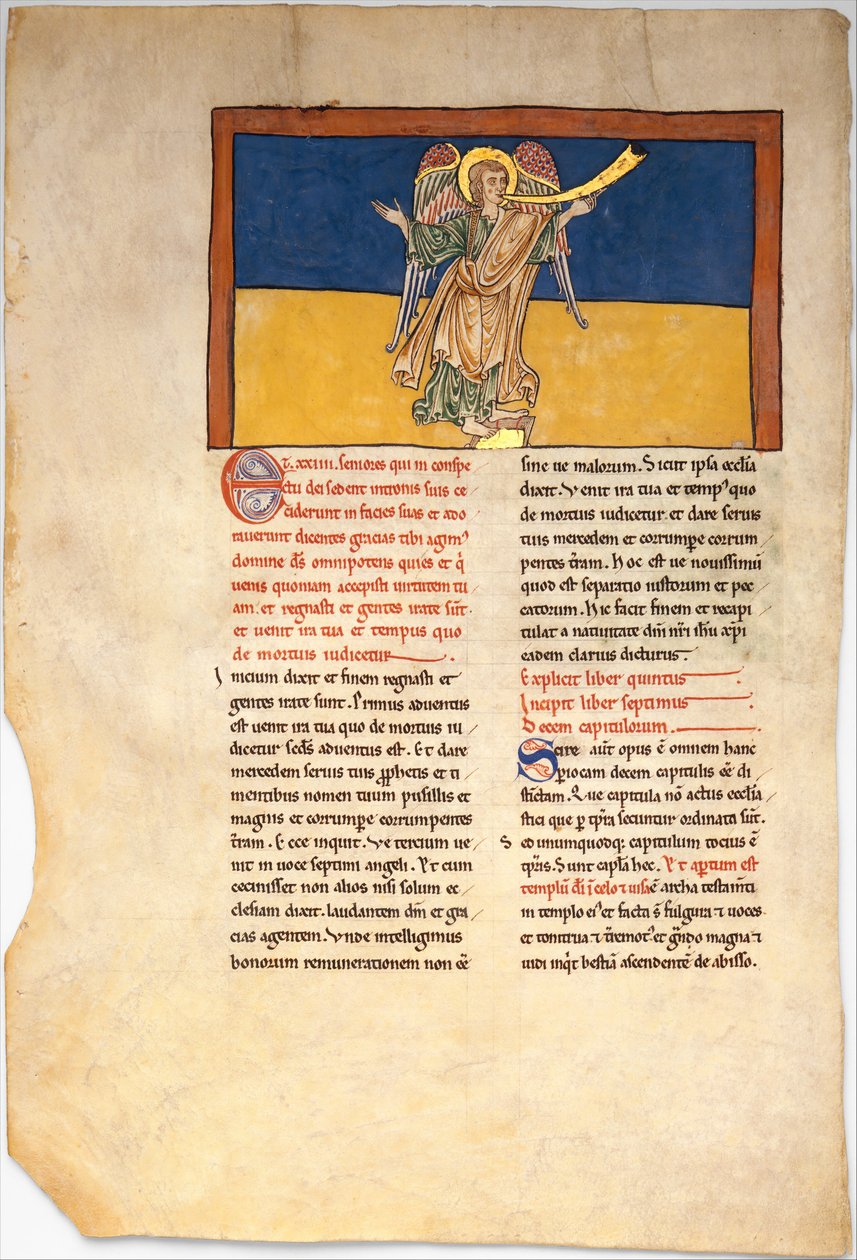 Et .xxiiii. seniores qui in conspe
ctu dei sedent intronis suis ce
ciderunt in facies suas et ado
rauerunt dicentes gracias tibi agimꝰ
domine d̄s omnipotens qui es et q̇
uenis quoniam accepisti uirtutem tu
am. et regnasti et gentes irate sūt.
et uenit ira tua et tempus quo
de mortuis iudicetur.
Inicium dixit et finem regnasti et
gentes irate sunt. Primus aduentus
est uenit ira tua quo de mortuis iu
dicetur scd̄s aduentus est. Et dare
mercedem seruis tuis ꝓphetis et ti
mentibus nomen tuum pusillis et
magnis et corrumꝑe corrumpentes
t̄ram. Ecce inquit. Ve tercium ue
nit in uoce septimi angeli. Et cum
cecinisset non alios nisi solum ec
clesiam dixit. laudantem dm̄ et gra
cias agentem. Vnde intelligimus
bonorum remunerationem non eē
sine ue malorum. Sicut ipsa eccl̄ia
dixit. Venit ira tua et tempꝰ quo
de mortuis iudicetur. et dare seruis
tuis mercedem et corrumꝑe corrum
pentes t̄ram. Hoc est ue nouissimū
quod est separatio iustorum et pec
catorum. Hic facit finem et recapi
tulat a natiuitate dn̄i nr̄i ih̄u xp̄i
eadem clarius dicturus.
Explicit liber quintus.
Incipit liber septimus
Decem capitulorum.
Scire aūt opus ē omnem hanc
ꝑiocam decem capitulis eē di
stīctam. Que capitula nō actus eccl̄ia
stici que ꝑ tp̄ra secuntur ordinata sūt.
Sed unumquodqꝫ capitulum tocius ē
tp̄ris. Sunt capl̄a hec. Et aꝑtum est
templū dī ī celo ⁊ uisa ē archa testam̄ti
in templo eiꝰ et facta s̄ fulgura ⁊ uoces
et tonitrua ⁊ t̄remotꝰ et g̊ndo magna ⁊
uidi inq̇t bestiā ascendentē de abisso.